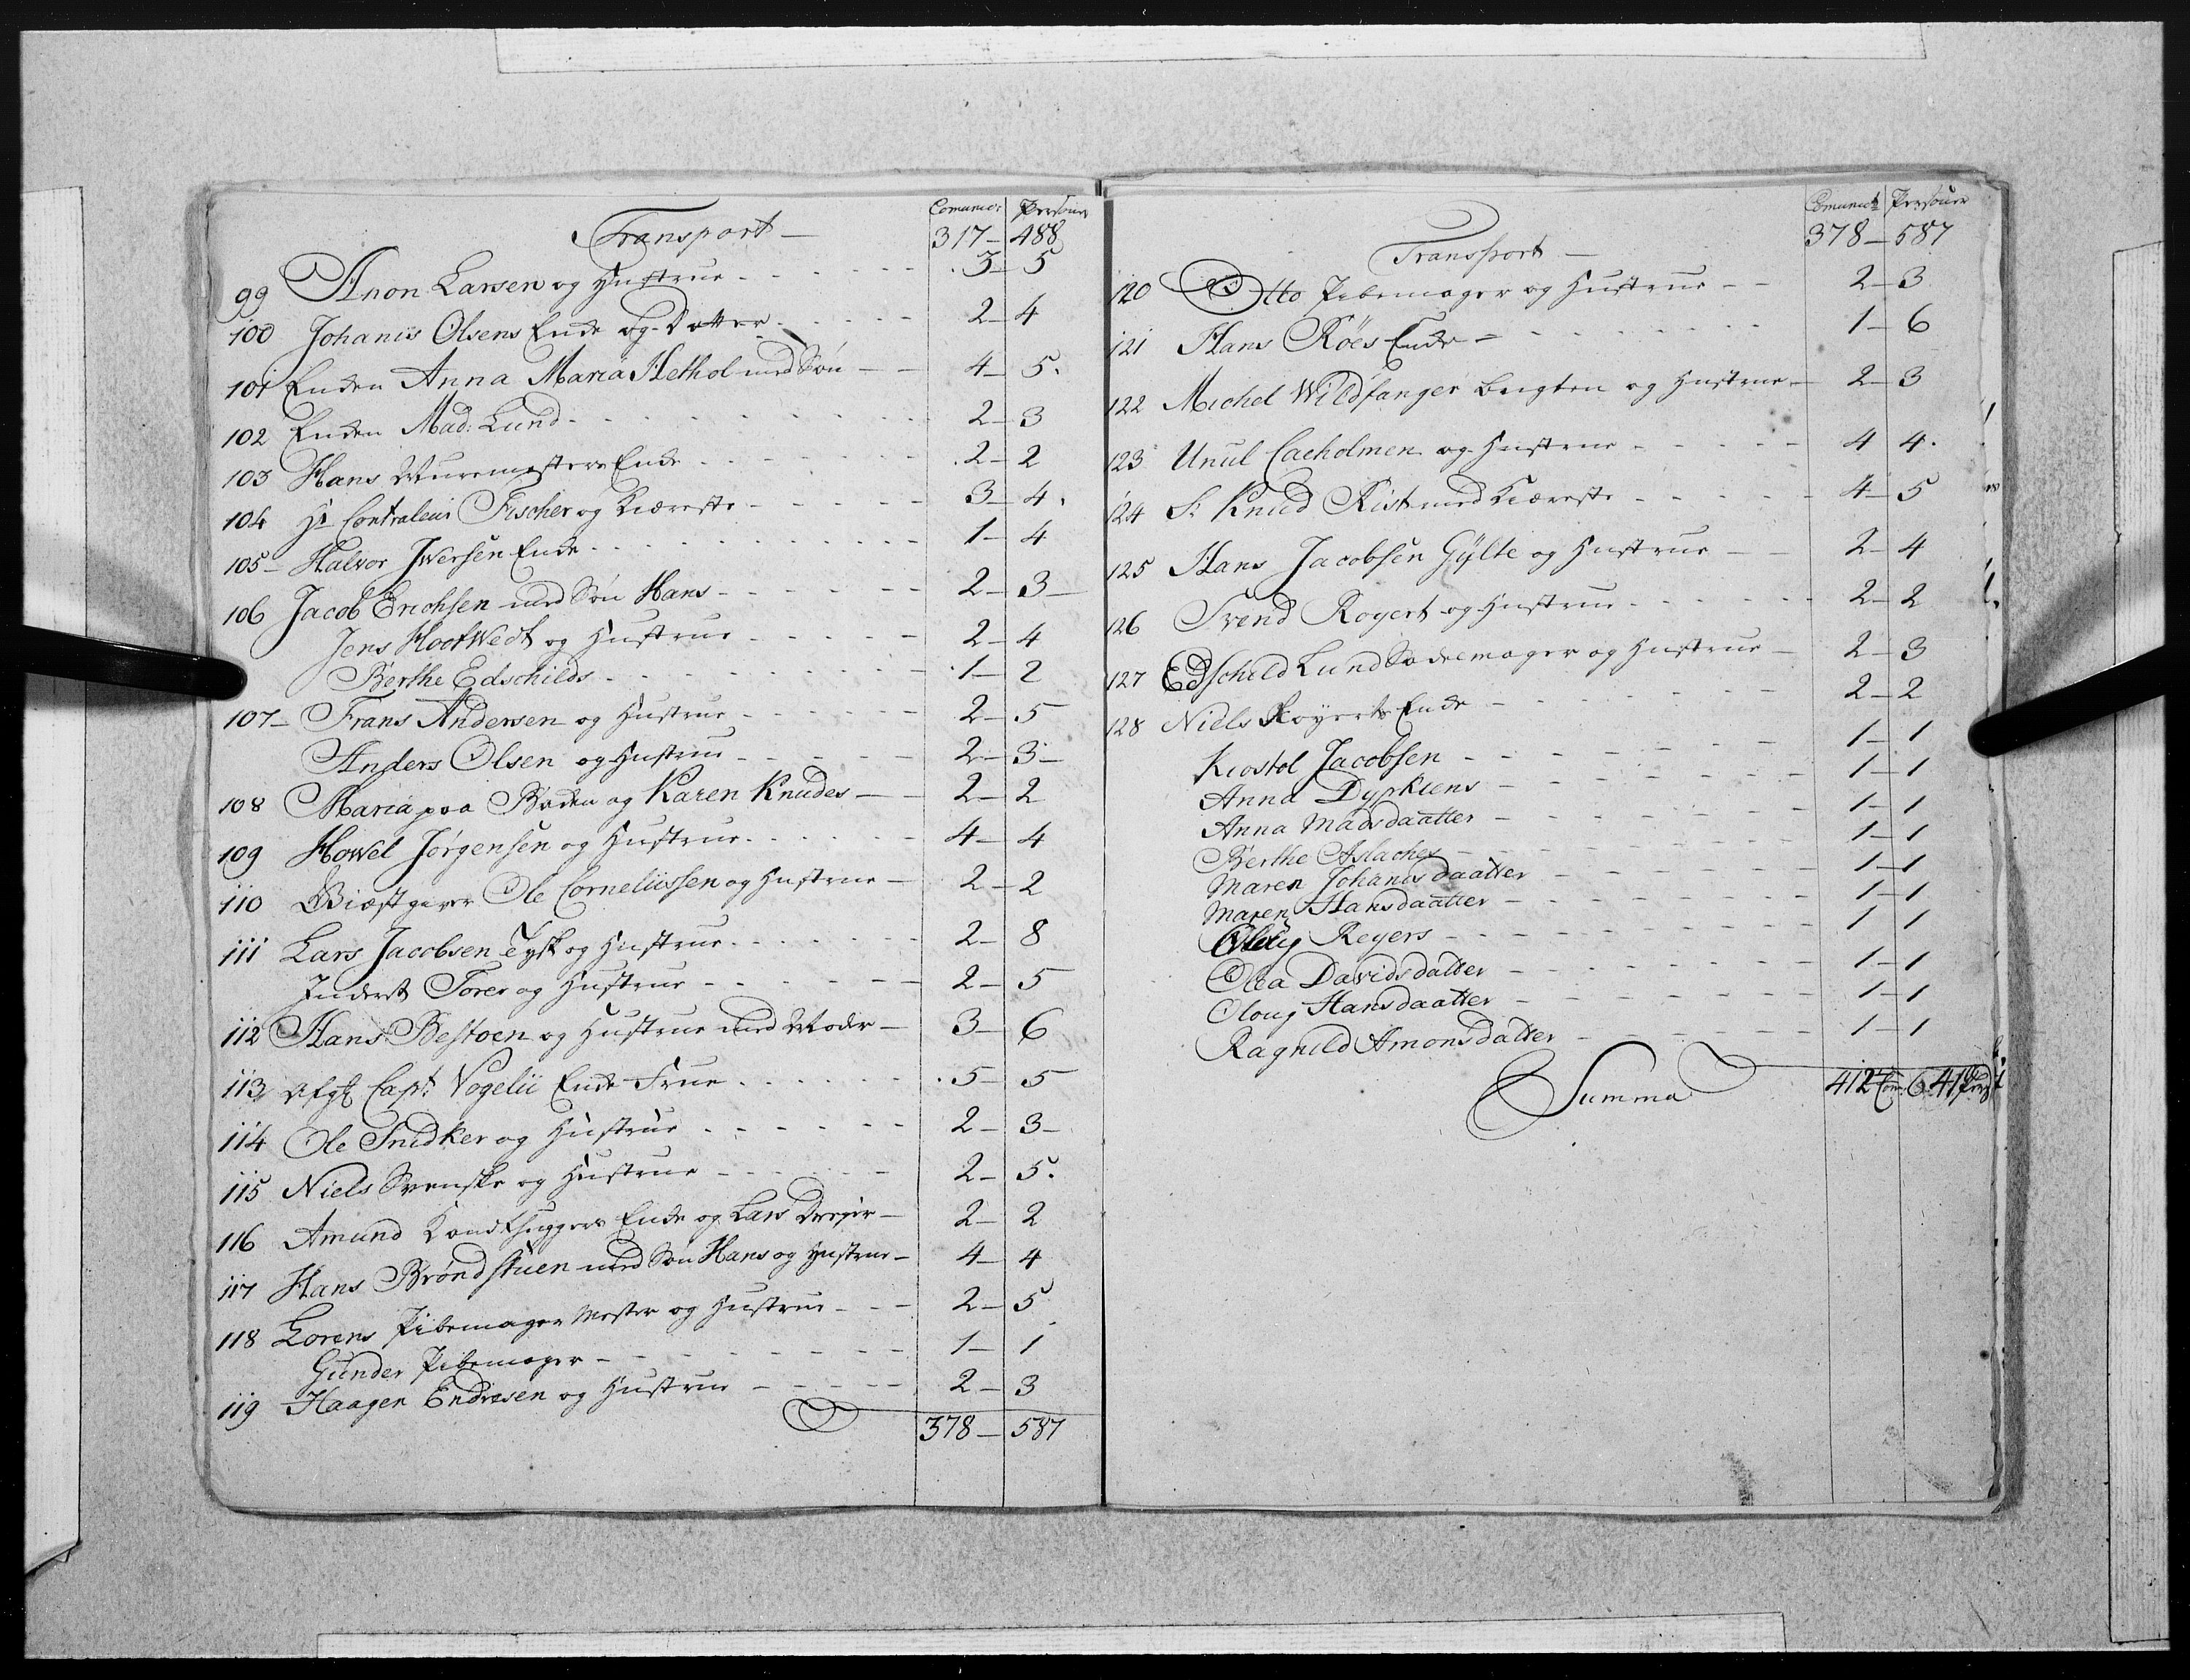 Comunic: Persouner
Transport — 317 — 488
99 Anon Larsen og Hustrue - - - 3 — 5
100 Johanis Olsens Enke og Dotter - - - 2 — 4
101 Enken Anna Maria Hethol med Søn — 4 — 5.
102 Enken Mad: Lund - - - 2 — 3
103 Hans Muremesters Enke - - - 2 — 2
104 Hr Contraleur Fischer og Kiæreste - - - 3 — 4.
105 — Halvor Iwersen Enke - - - 1 — 4
106 Jacob Erichsen med Søn Hans - - - 2 — 3 —
Jens Hootwedt og Hustrue - - - 2 — 4
Berthe Edschilds - - - 1 — 2
107 — Frans Andersen og Hustrue - - - 2 — 5
Anders Olsen og Hustrue - - - 2 — 3 —
108 Maria paa Boden og Karen Knudes — 2 — 2
109 Howel Jørgensen og Hustrue - - - 4 — 4
110 Giæstgiver Ole Corneliissen og Hustrue — 2 — 2
111 Lars Jacobsen Tysk og Hustrue - - - 2 — 8
Inderst Torer og Hustrue - - - 2 — 5
112 Hans Bestoen og Hustrue med Moder — 3 — 6
113 Afgt Capt: Vogelii Enke Frue - - - 5 — 5
114 Ole Snidker og Hustrue - - - 2 — 3 —
115 Niels Svenske og Hustrue - - - 2 — 5.
116 Amund Kandthuggers Enke og Lars — 2 — 2
117 Hans Brøndstuen med Søn Hans og Hustrue — 4 — 4
118 Lorens Pibemager Mester og Hustrue - - - 2 — 5
Gunder Pibemager - - - 1 — 1
119 Haagen Endresen og Hustrue - - - 2 — 3
378 — 587
Comunict Persouner
Transport — 378 — 587
120 Otto Pibemager og Hustrue - - 2 — 3
121 Hans Röes Enke - - - 1 — 6
122 Michel Wildfanger og Hustrue — 2 — 3
123 Unul Caeholmen og Hustrue - - - 4 4.
124 Sr Knud Rist med Kiæreste - - - 4 — 5
125 Hans Jacobsen Gylte og Hustrue - - 2 — 4
126 Svend Rogert og Hustrue - - - 2 — 2
127 Edschild Lund Sadelmager og Hustrue — 2 — 3
128 Niels Royerts Enke - - - 2 — 2
Kiostol Jacobsen - - - 1 — 1
Anna Dypkiens - - - 1 — 1
Anna Madsdaatter - - - 1 — 1
Berthe Aslaches - - - 1 — 1
Maren Johanis daatter - - - 1 — 1
Maren Hansdaatter - - - 1 — 1
Oloug Reyers - - - 1 1
Olea Davidsdatter - - - 1 — 1
Oloug Hansdaatter - - - 1 — 1
Ragnild Amonsdatter - - - 1 — 1
Summa 412 Com: 641